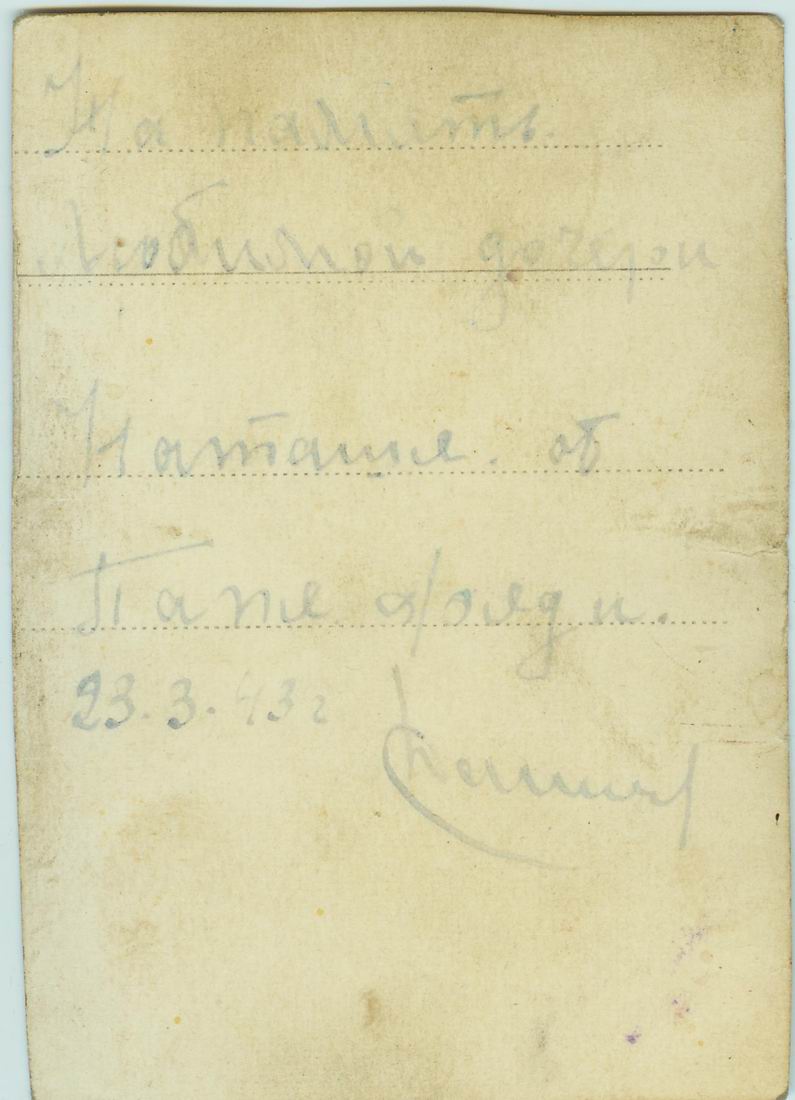 На память
Любимой дочери
Наташе. от
Папе
23.3.43 г